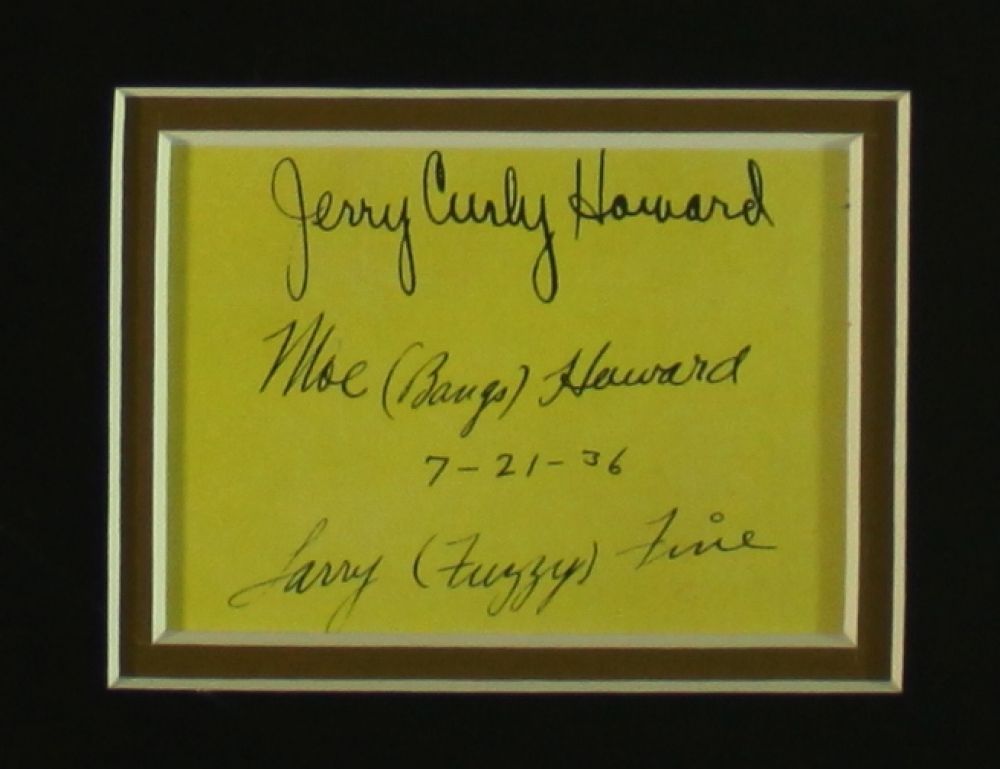 Jerry Curly Howard
Moe (Bangs) Howard
7-21-36
Larry (Fuzzy) Fine